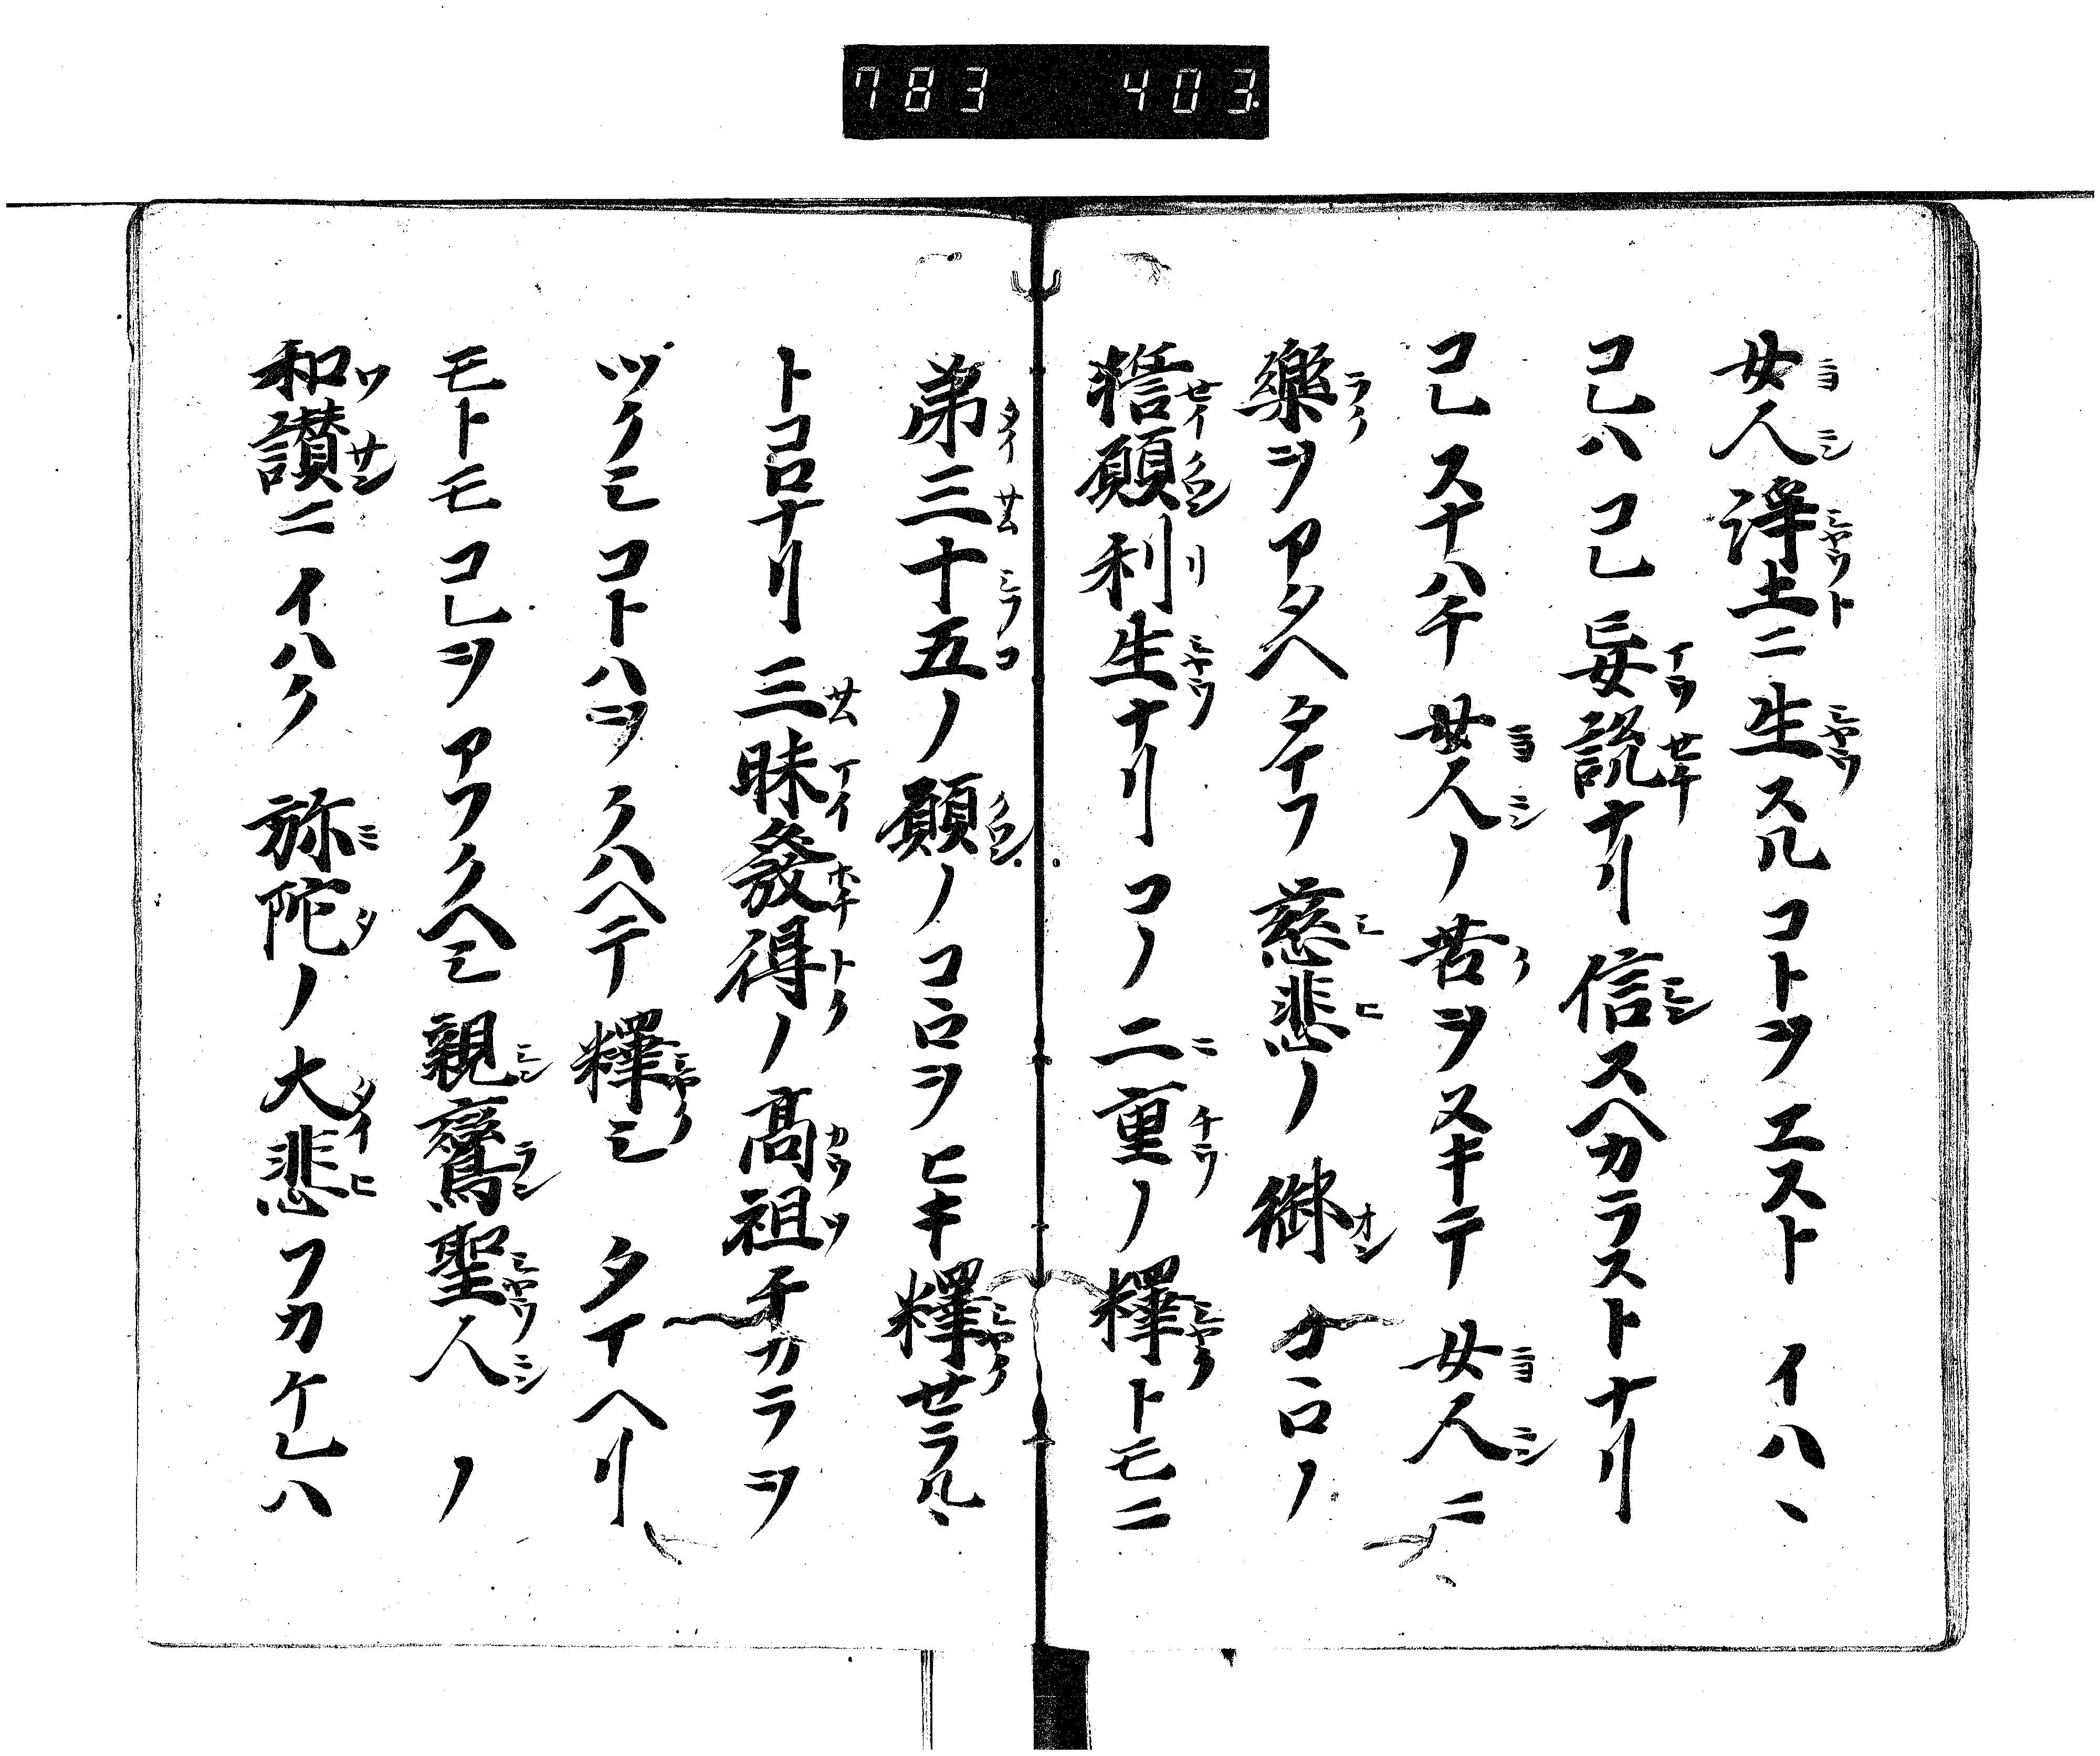 783 403
女人浄土ニ生スルコトヲエストイハヽ
コレハコレ妄説ナリ信スヘカラストナリ
コレスナハチ女人ノ苦ヲヌキテ女人ニ
樂ヲアタヘタマフ慈悲ノ御コヽロノ
誓願利生ナリコノ二重ノ釋トモニ
第三十五ノ願ノコヽロヲヒキ釋セラルヽ
トコロナリ三昧發得ノ高祖チカラヲ
ツクシコトハヲクハヘテ釋シタマヘリ
モトモコレヲアフクヘシ親鸞聖人ノ
和讃ニイハク弥陀ノ大悲フカケレハ